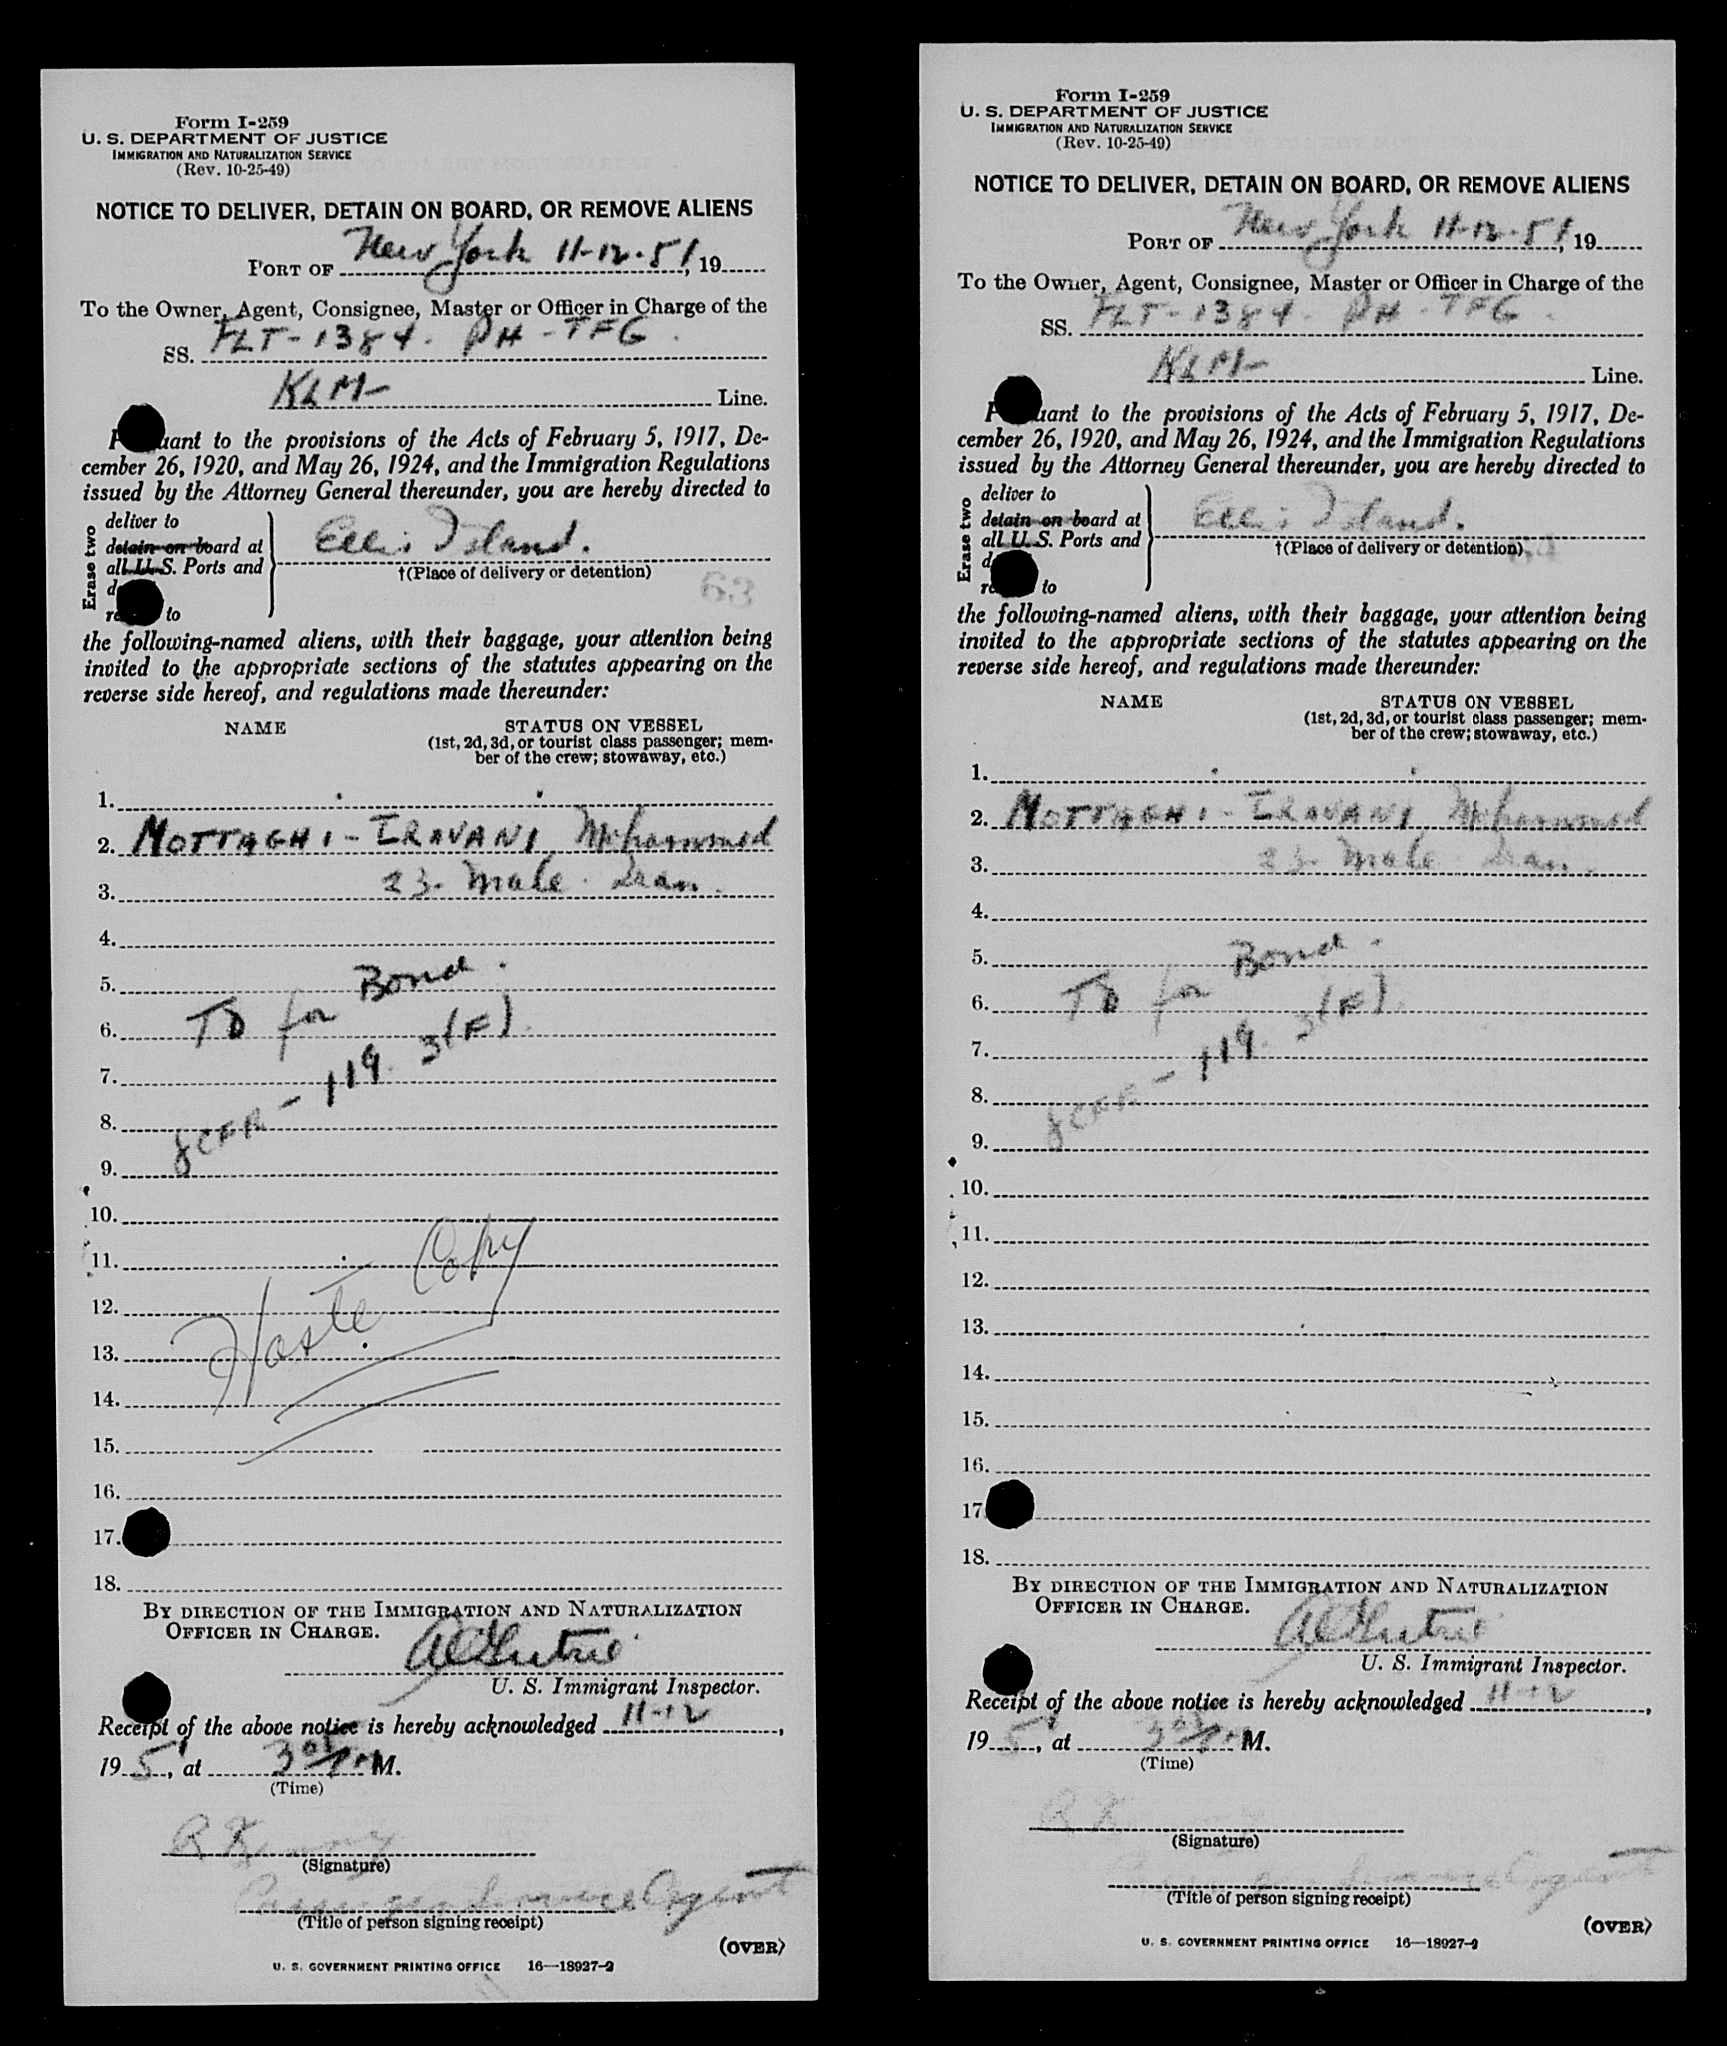 Form I-259
U. S. DEPARTMENT OF JUSTICE
IMMIGRATION AND NATURALIZATION SERVICE
(Rev. 10-25-49)
NOTICE TO DELIVER, DETAIN ON BOARD, OR REMOVE ALIENS
PORT OF New York 11-12-51, 19
To the Owner, Agent, Consignee, Master or Officer in Charge of the
SS. FLT-1384. PH-TFG.
KLM Line.
P uant to the provisions of the Acts of February 5, 1917, De-
cember 26, 1920, and May 26, 1924, and the Immigration Regulations
issued by the Attorney General thereunder, you are hereby directed to
Erase two
deliver to
detain on board at
all U.S. Ports and
d
re to
Ellis Island.
†(Place of delivery or detention)
63
the following-named aliens, with their baggage, your attention being
invited to the appropriate sections of the statutes appearing on the
reverse side hereof, and regulations made thereunder:
NAME
STATUS ON VESSEL
(1st, 2d, 3d, or tourist class passenger; mem-
ber of the crew; stowaway, etc.)
1.
2. MOTTAGHI-IRAVANI Mohammed
3. 23. Male. Iran.
4.
5.
6. TD for Bond.
7.
8. 8CFR - 119. 3(F).
9.
10.
11.
12. Haste Copy
13.
14.
15.
16.
17.
18.
BY DIRECTION OF THE IMMIGRATION AND NATURALIZATION
OFFICER IN CHARGE.
U. S. Immigrant Inspector.
Receipt of the above notice is hereby acknowledged 11-12,
19 51, at 3 05 P M.
(Time)
(Signature)
Passenger Service Agent
(Title of person signing receipt)
(OVER)
U. S. GOVERNMENT PRINTING OFFICE 16—18927-2
Form I-259
U. S. DEPARTMENT OF JUSTICE
IMMIGRATION AND NATURALIZATION SERVICE
(Rev. 10-25-49)
NOTICE TO DELIVER, DETAIN ON BOARD, OR REMOVE ALIENS
PORT OF New York 11-12-51, 19
To the Owner, Agent, Consignee, Master or Officer in Charge of the
SS. FLT-1384. PH-TFG.
KLM Line.
P uant to the provisions of the Acts of February 5, 1917, De-
cember 26, 1920, and May 26, 1924, and the Immigration Regulations
issued by the Attorney General thereunder, you are hereby directed to
Erase two
deliver to
detain on board at
all U.S. Ports and
d
re to
Ellis Island.
†(Place of delivery or detention)
64
the following-named aliens, with their baggage, your attention being
invited to the appropriate sections of the statutes appearing on the
reverse side hereof, and regulations made thereunder:
NAME
STATUS ON VESSEL
(1st, 2d, 3d, or tourist class passenger; mem-
ber of the crew; stowaway, etc.)
1.
2. MOTTAGHI-IRAVANI Mohammed
3. 23. Male. Iran.
4.
5.
6. TD for Bond.
7.
8. 8CFR - 119. 3(F).
9.
10.
11.
12.
13.
14.
15.
16.
17
18.
BY DIRECTION OF THE IMMIGRATION AND NATURALIZATION
OFFICER IN CHARGE.
U. S. Immigrant Inspector.
Receipt of the above notice is hereby acknowledged 11-12,
19 51, at 3 05 P M.
(Time)
(Signature)
Passenger Service Agent
(Title of person signing receipt)
(OVER)
U. S. GOVERNMENT PRINTING OFFICE 16—18927-2